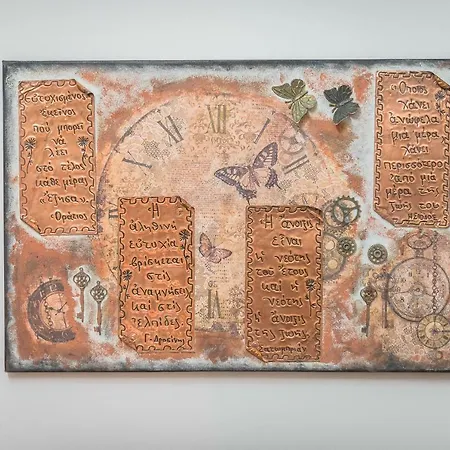 Ευτυχισμένος
εκείνος
που μπορεί
να
λέει
στο τέλος
κάθε μέρας
έζησα.
-Οράτιος
Η
αληθινή
ευτυχία
βρίσκεται
στις
αναμνήσεις
και στις
ελπίδες.
Γ. Δροσίνης
Η άνοιξη
είναι
η νεότης
του έτους
και η
νεότης
η άνοιξη
της ζωής
Όποιος
χάνει
ανώφελα
μια μέρα
χάνει
περισσότερο
από μια
μέρα της
ζωή του
XII